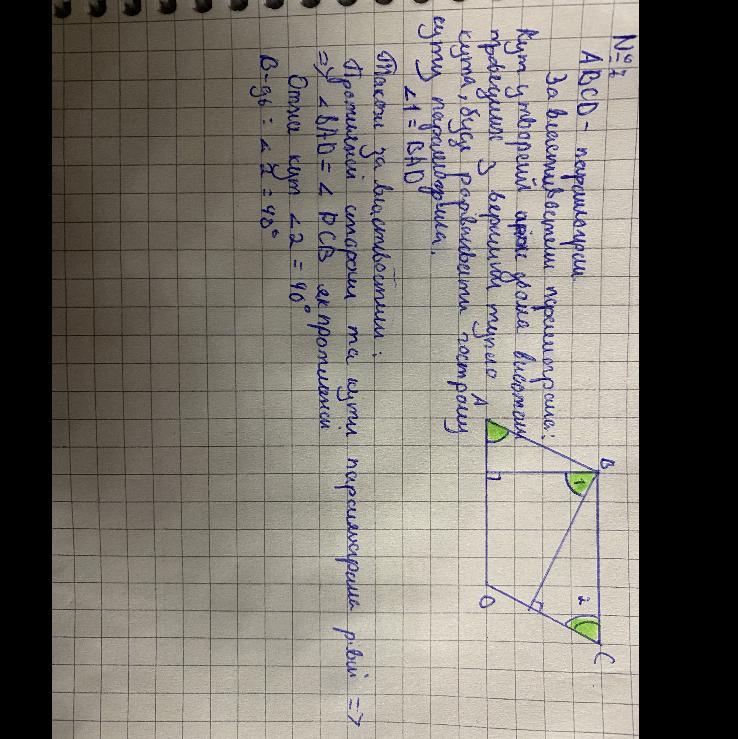 №7
ABCD - паралелограм
За властивостями паралелограма:
Кут утворений двома висотами
проведеними з вершини тупого
кута, буде дорівнювати гострому
куту паралелограма.
∠1 = BAD
Також за властивостями:
Протилежні сторони та кути паралелограма рівні =>
=> ∠BAD = ∠DCB як протилежні
Отже кут ∠2 = 40°
В-дь: ∠2 = 40°
A
B
1
2
C
D